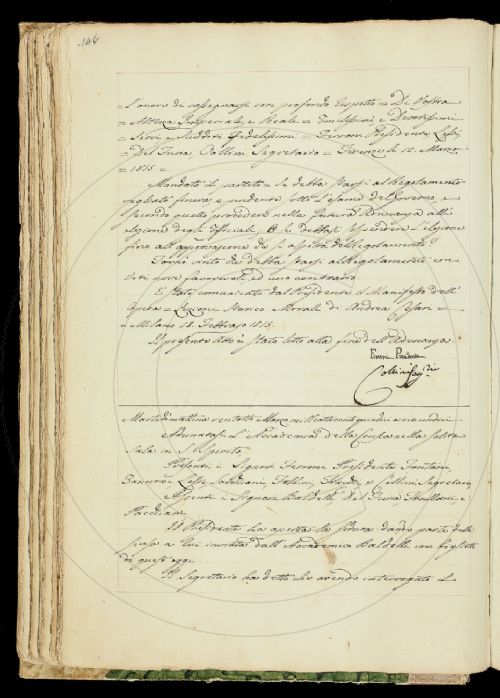 146
= L'onore di rassegnarsi con profondo rispetto = Di Vostra
= Altezza Imperiale, e Reale = Umilissimi e Devotissimi
= Servi, e Sudditi Fedelissimi = Ferroni Presidente, Lessi,
= Del Furia, Collini Segretario = Firenze li 12. Marzo
= 1815 =
Mandato il partito = Se debba starsi al Regolamento
vegliato finora e pendente sotto l'esame del Governo, e
secondo quello procedere nella futura Adunanza all'
elezione degli Uffiziali; O se debbasi sospendere l'elezione
fino all'approvazione del Regolamento
Fù vinto che debba starsi al Regolamento con
voti nove favorevoli, ed uno contrario.
È stato comunicato dal Presidente il Manifesto dell'
Opera = Lezioni Storico Morali di Andrea =
= Milano 18. Febbraio 1815.
Il presente Atto è stato letto alla fine dell'Adunanza.
Ferroni Presidente
Collini Seg.rio
Martedì mattina ventotto Marzo Milleottocento quindici a ore undici
Adunatasi L'Accademia della Crusca nella solita
Sala in S. Spirito
Presenti i Signori Ferroni Presidente, Fontani,
Sarchiani, e Collini Segretario,
Assenti i Signori Baldelli, Del Furia, e
Il Presidente ha aperta la seduta dando parte della
scusa a lui inviata dall'Accademico Baldelli con biglietto
di quest'oggi.
Il Segretario ha detto che avendo interrogato il